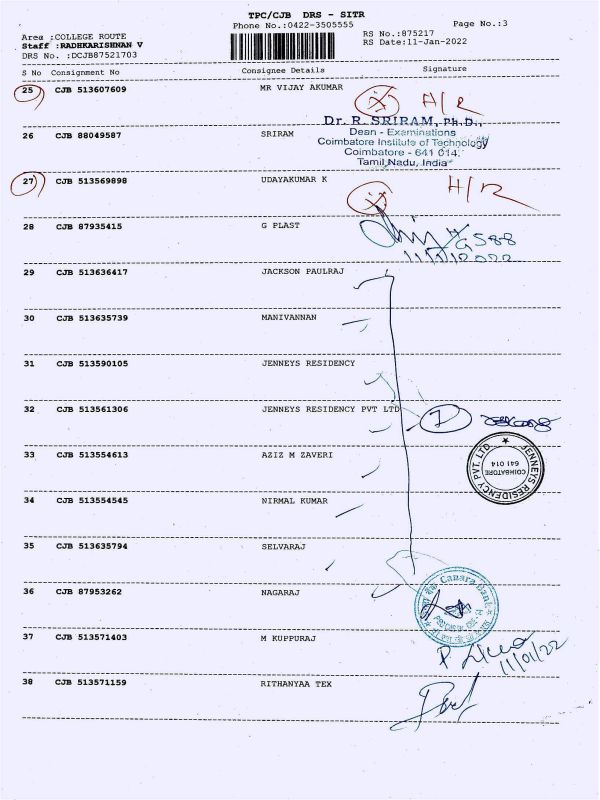 TPC/CJB DRS - SITR
Phone No.:0422-3505555
Page No.:3
Area :COLLEGE ROUTE
Staff :RADHKARISHNAN V
DRS No. :DCJB87521703
RS No.:875217
RS Date:11-Jan-2022
S No Consignment No Consignee Details Signature
25 CJB 513607609 MR VIJAY AKUMAR
H/R
Dr. R. SRIRAM, Ph.D.,
Dean - Examinations
Coimbatore Institute of Technology
Coimbatore - 641 014.
Tamil Nadu, India
26 CJB 88049587 SRIRAM
27 CJB 513569898 UDAYAKUMAR K
H/R
28 CJB 87935415 G PLAST
29 CJB 513636417 JACKSON PAULRAJ
30 CJB 513635739 MANIVANNAN
31 CJB 513590105 JENNEYS RESIDENCY
32 CJB 513561306 JENNEYS RESIDENCY PVT LTD
7
JENNEYS RESIDENCY PVT. LTD.
COIMBATORE
641 014
33 CJB 513554613 AZIZ M ZAVERI
34 CJB 513554545 NIRMAL KUMAR
35 CJB 513635794 SELVARAJ
36 CJB 87953262 NAGARAJ
Canara Bank
37 CJB 513571403 M KUPPURAJ
11/01/22
38 CJB 513571159 RITHANYAA TEX